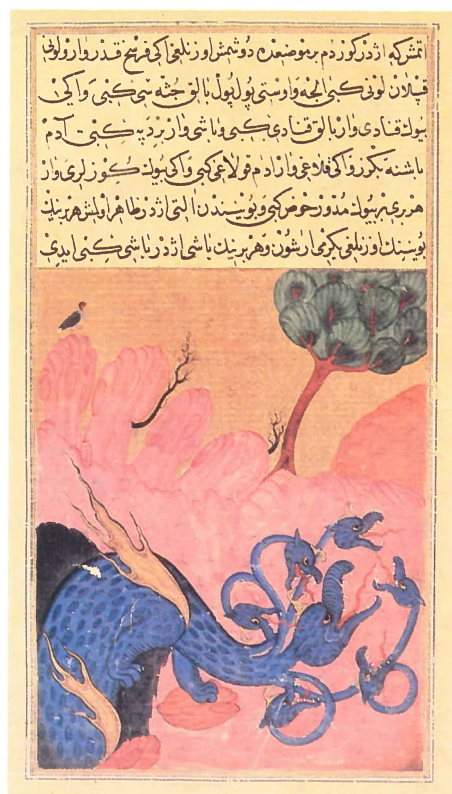 اتمش كه اژدر كوردم بر موضعده دوشمش اوزنلغى اكى فرسخ قدر وار و لونى
قپلان لونى كبى الجه و اوستى پول پول بالق جثه سى كبى و اكى
بيوك قنادى وار بالق قنادى كبى و باشى وار بر دپه كبى آدم
باشنه بكزر و اكى قلاغى وار آدم قولاغى كبى و اكى بيوك كوزلرى وار
هر برى بر بيوك مدور حوض كبى و بوينندن التى اژدر ظاهر اولمش هر برينك
بوينينك اوزنلغى يكرمى ارشون و هر برينك باشى اژدر باشى كبى ايدى